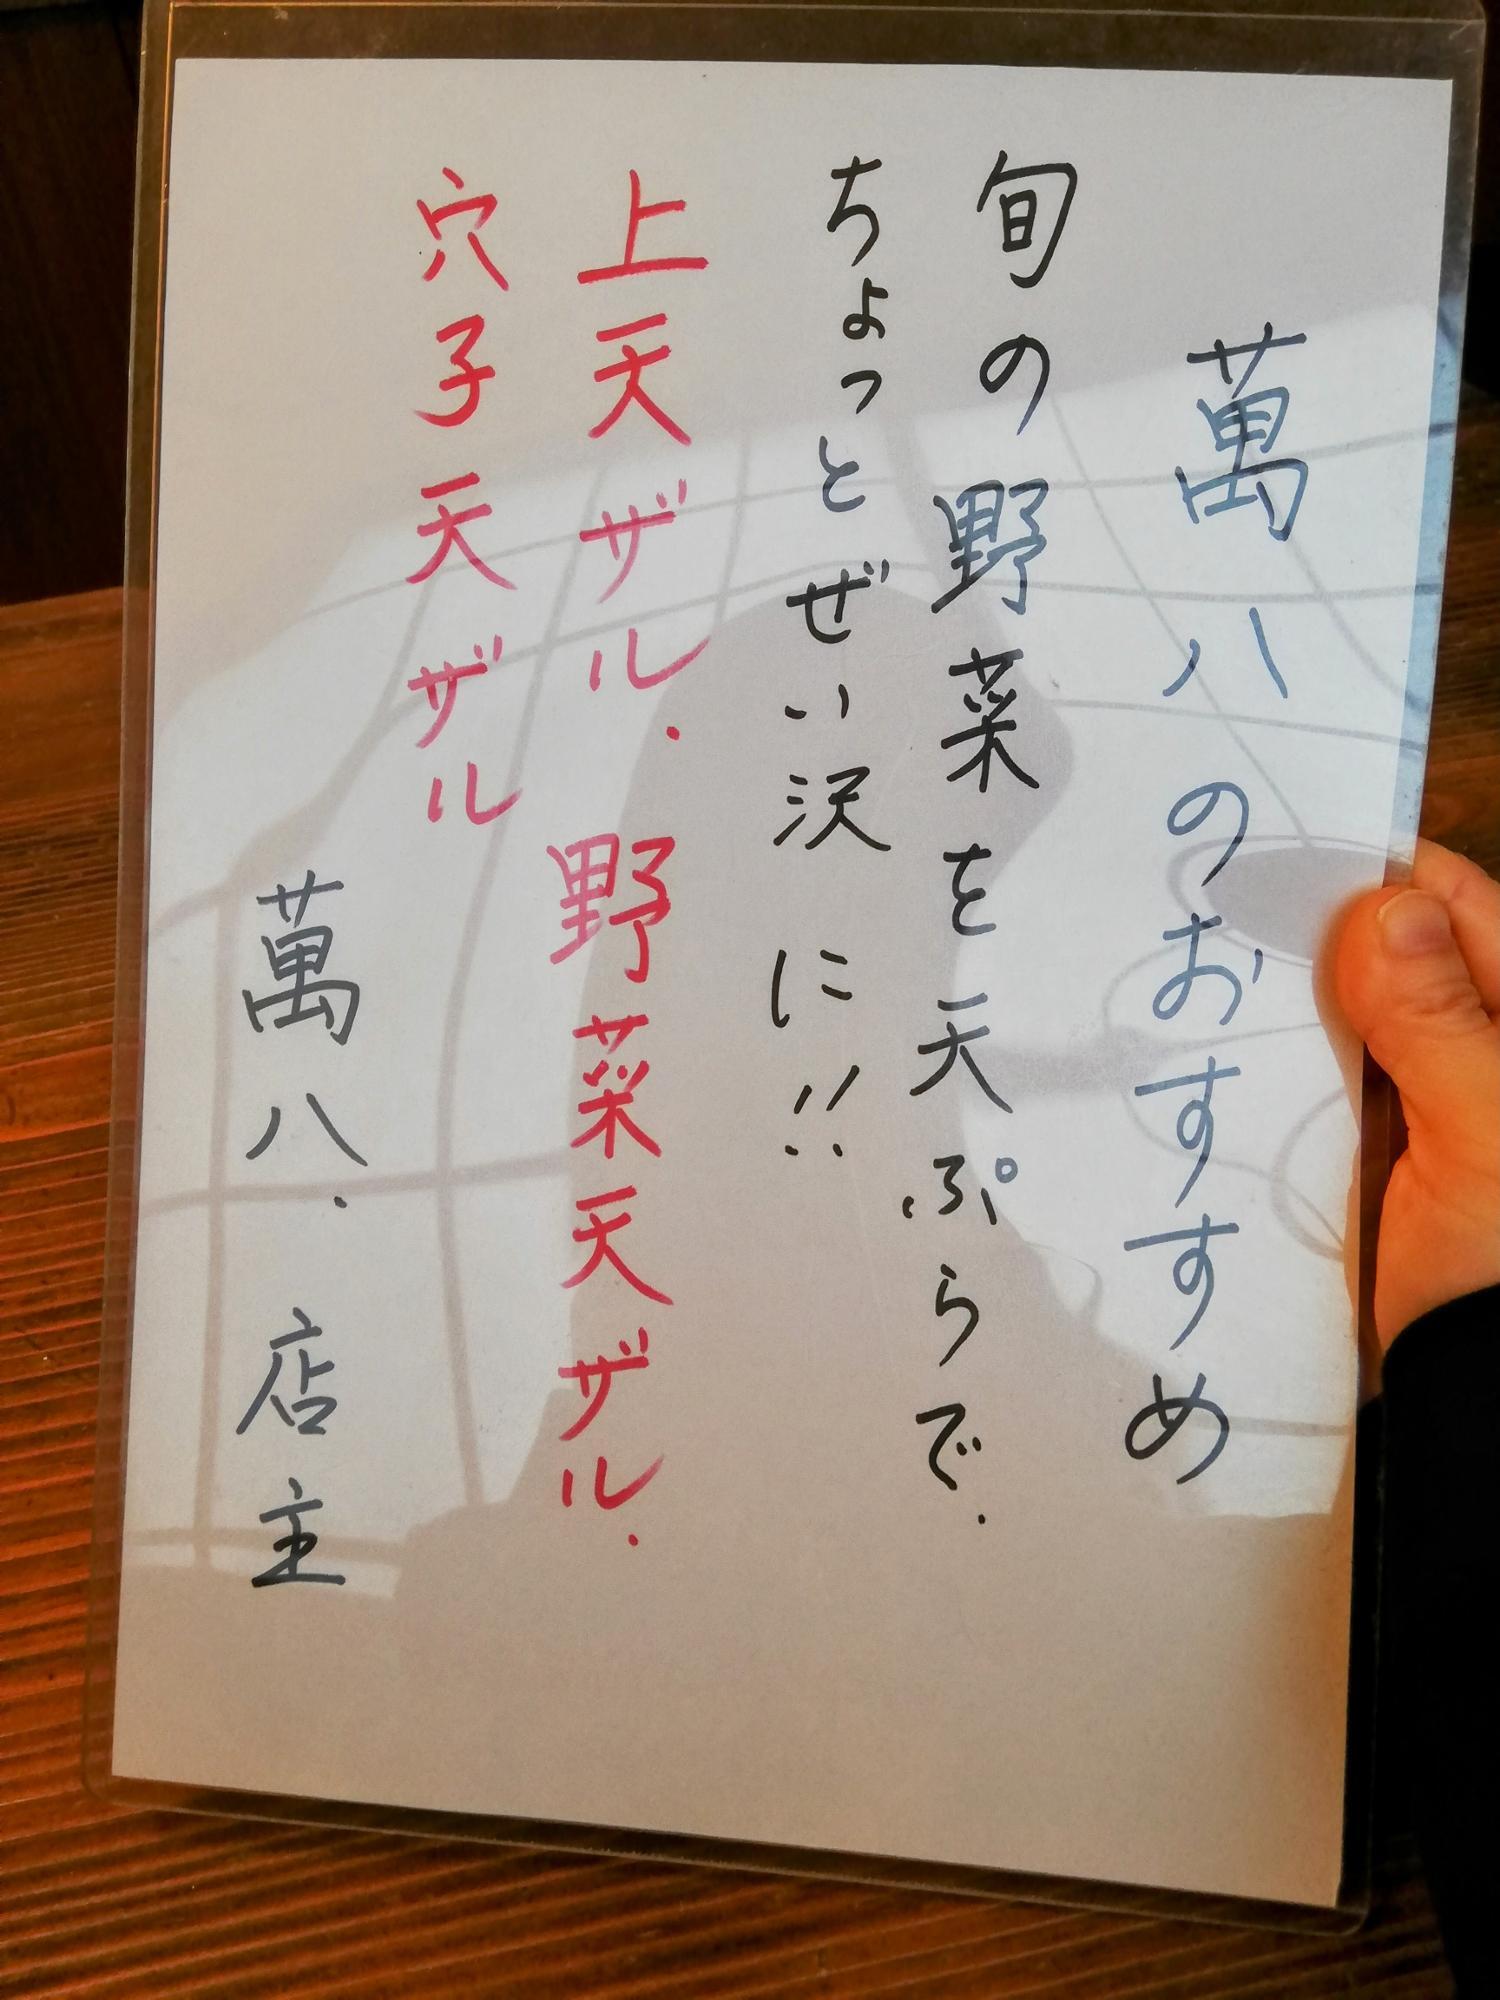 萬八のおすすめ
旬の野菜を天ぷらで.
ちょっとぜい沢に!!
上天ザル.野菜天ザル.
穴子天ザル
萬八.店主